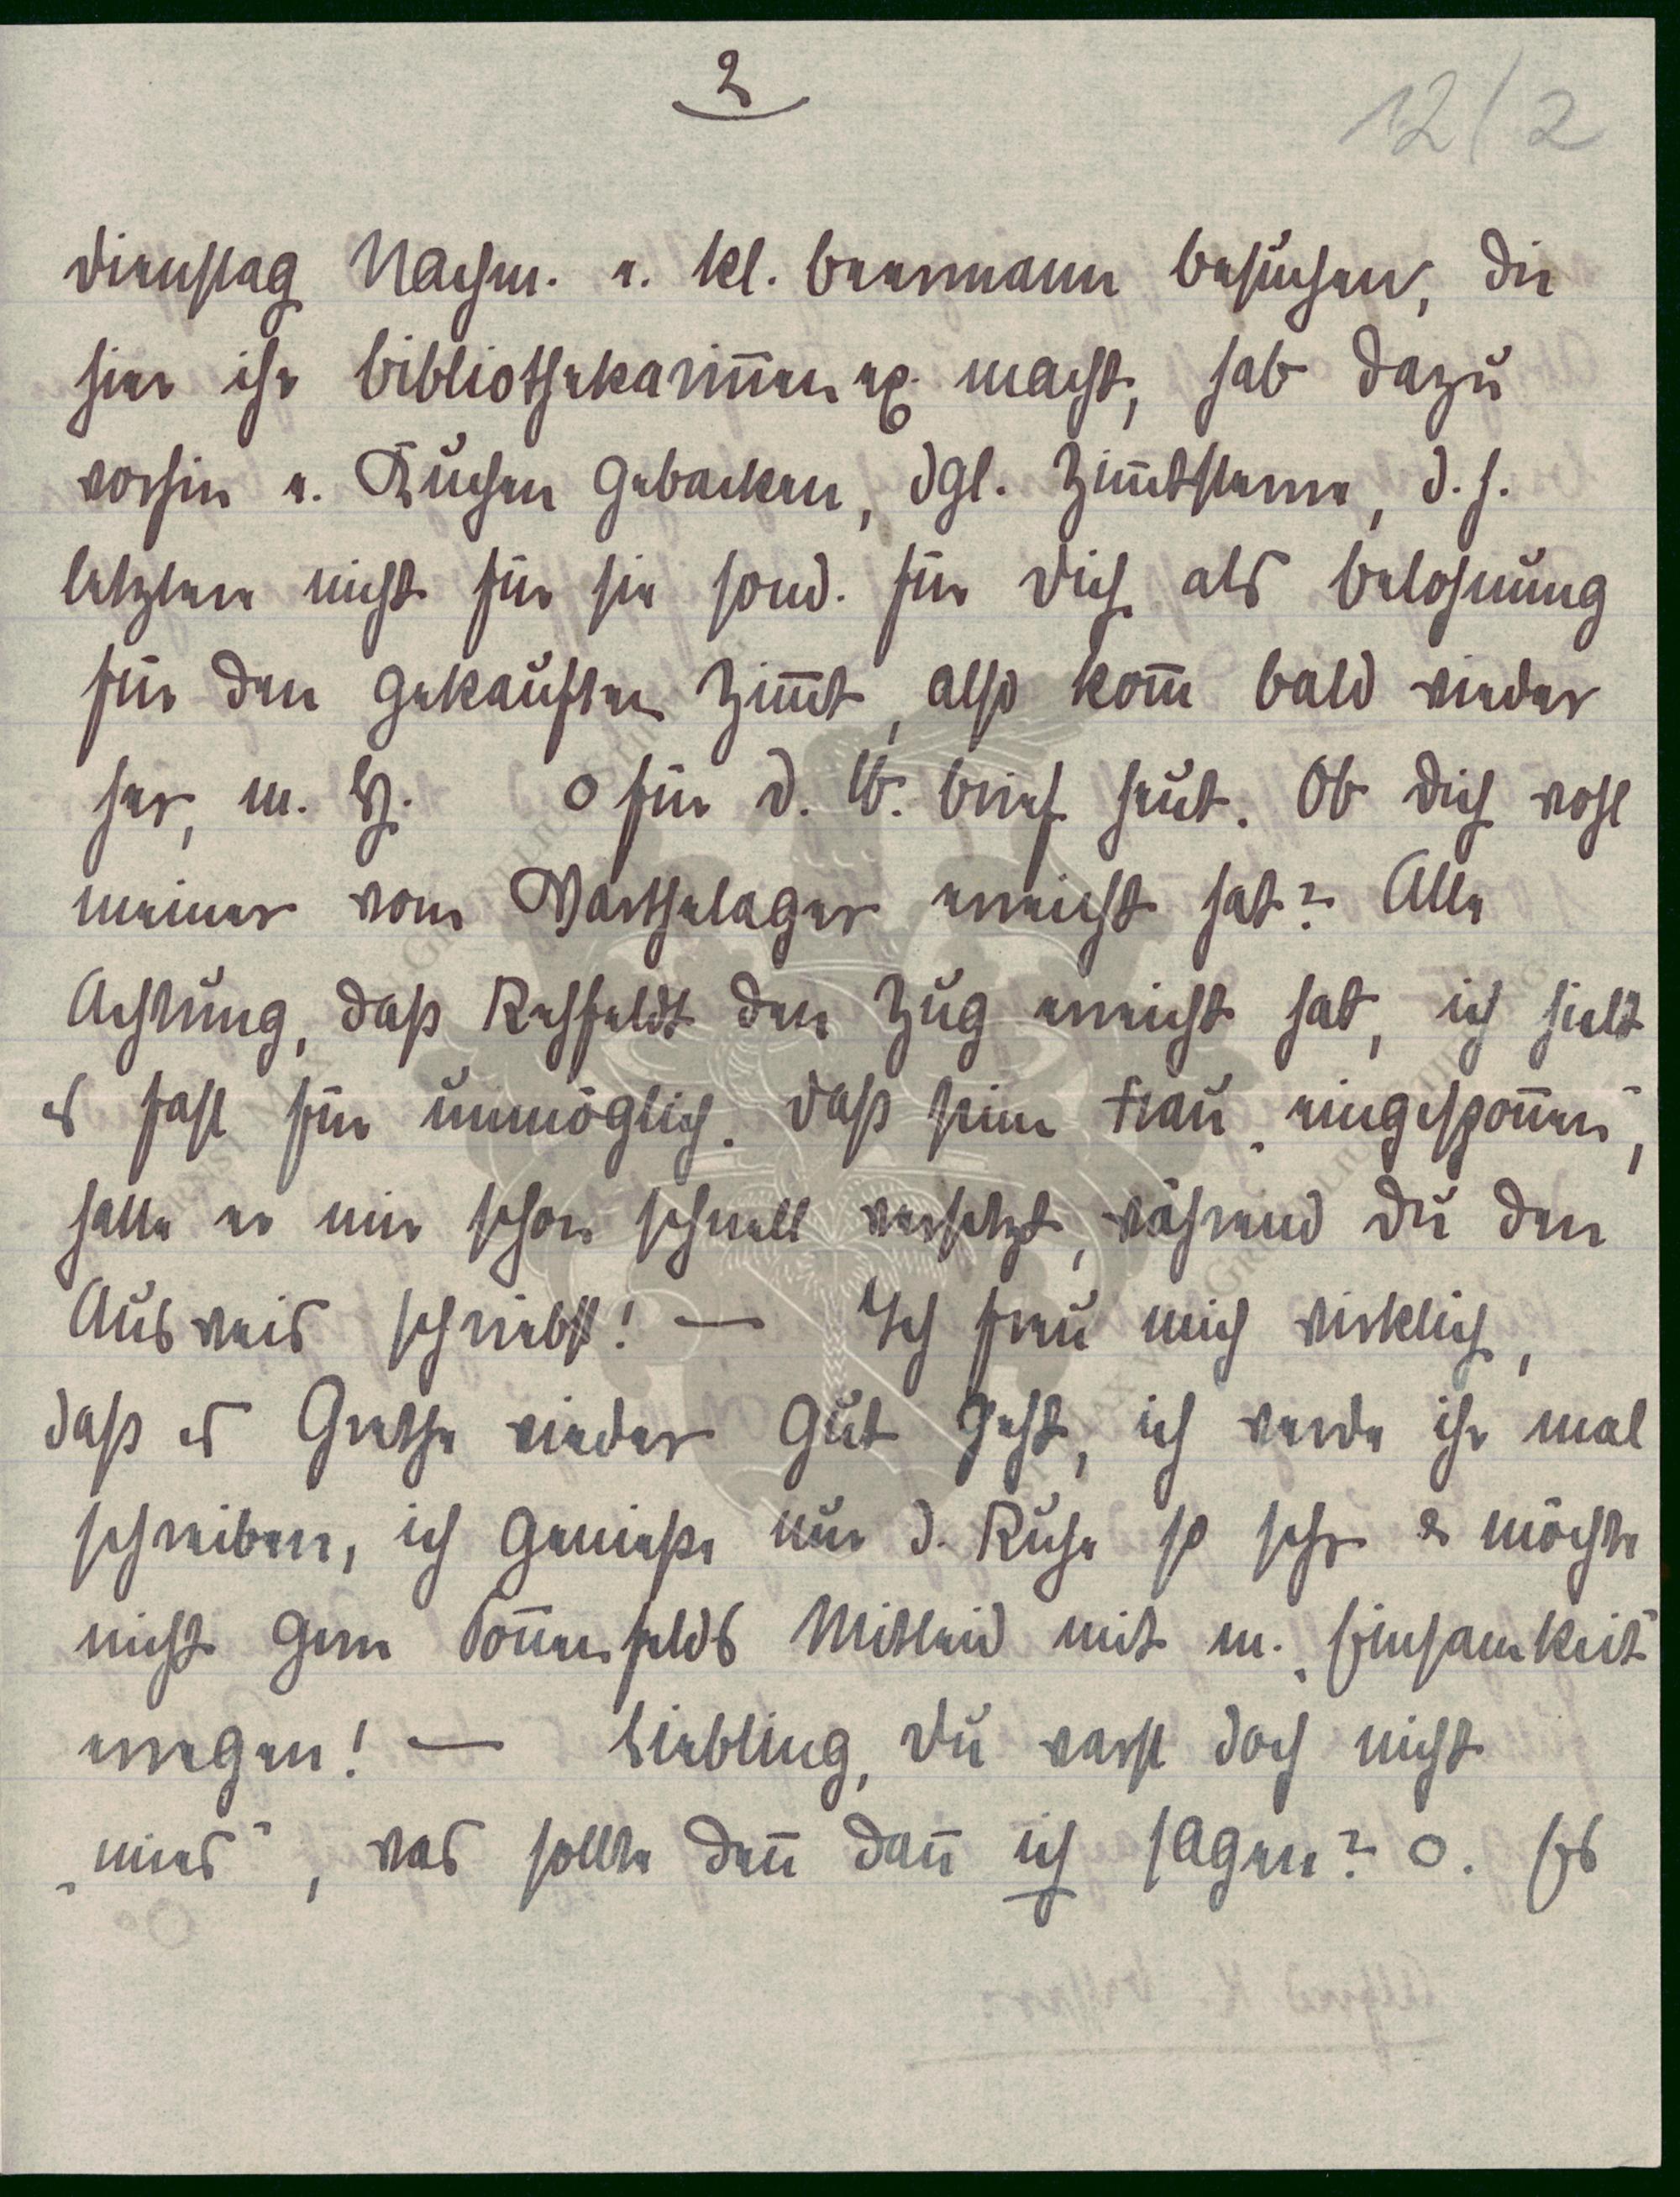 2
12/2
Dienstag Nachm. e. kl. Beermann besuchen, die
hier ihr Bibliothekarinnenex. macht, hab dazu
vorhin e. Kuchen gebacken, dgl. Zimtsterne, d. h.
letztere nicht für sie sond. für Dich als Belohnung
für den gekauften Zimt, also komm bald wieder
her, m. H. O für d. lb. Brief heut. Ob Dich wohl
meiner vom Warthelager erreicht hat? Alle
Achtung, daß Rehfeldt den Zug erreicht hat, ich hielt
es fast für unmöglich. Daß seine Frau „eingesponnen",
hatte er mir schon schnell versetzt, während Du den
Ausweis schriebst! — Ich freu mich wirklich,
daß es Grethe wieder gut geht, ich werde ihr mal
schreiben, ich genieße nur d. Ruhe so sehr & möchte
nicht gern Sonnenfelds Mitleid mit m. „Einsamkeit"
erregen! — Liebling, Du warst doch nicht
„mies", was sollte denn dann ich sagen? O. Es